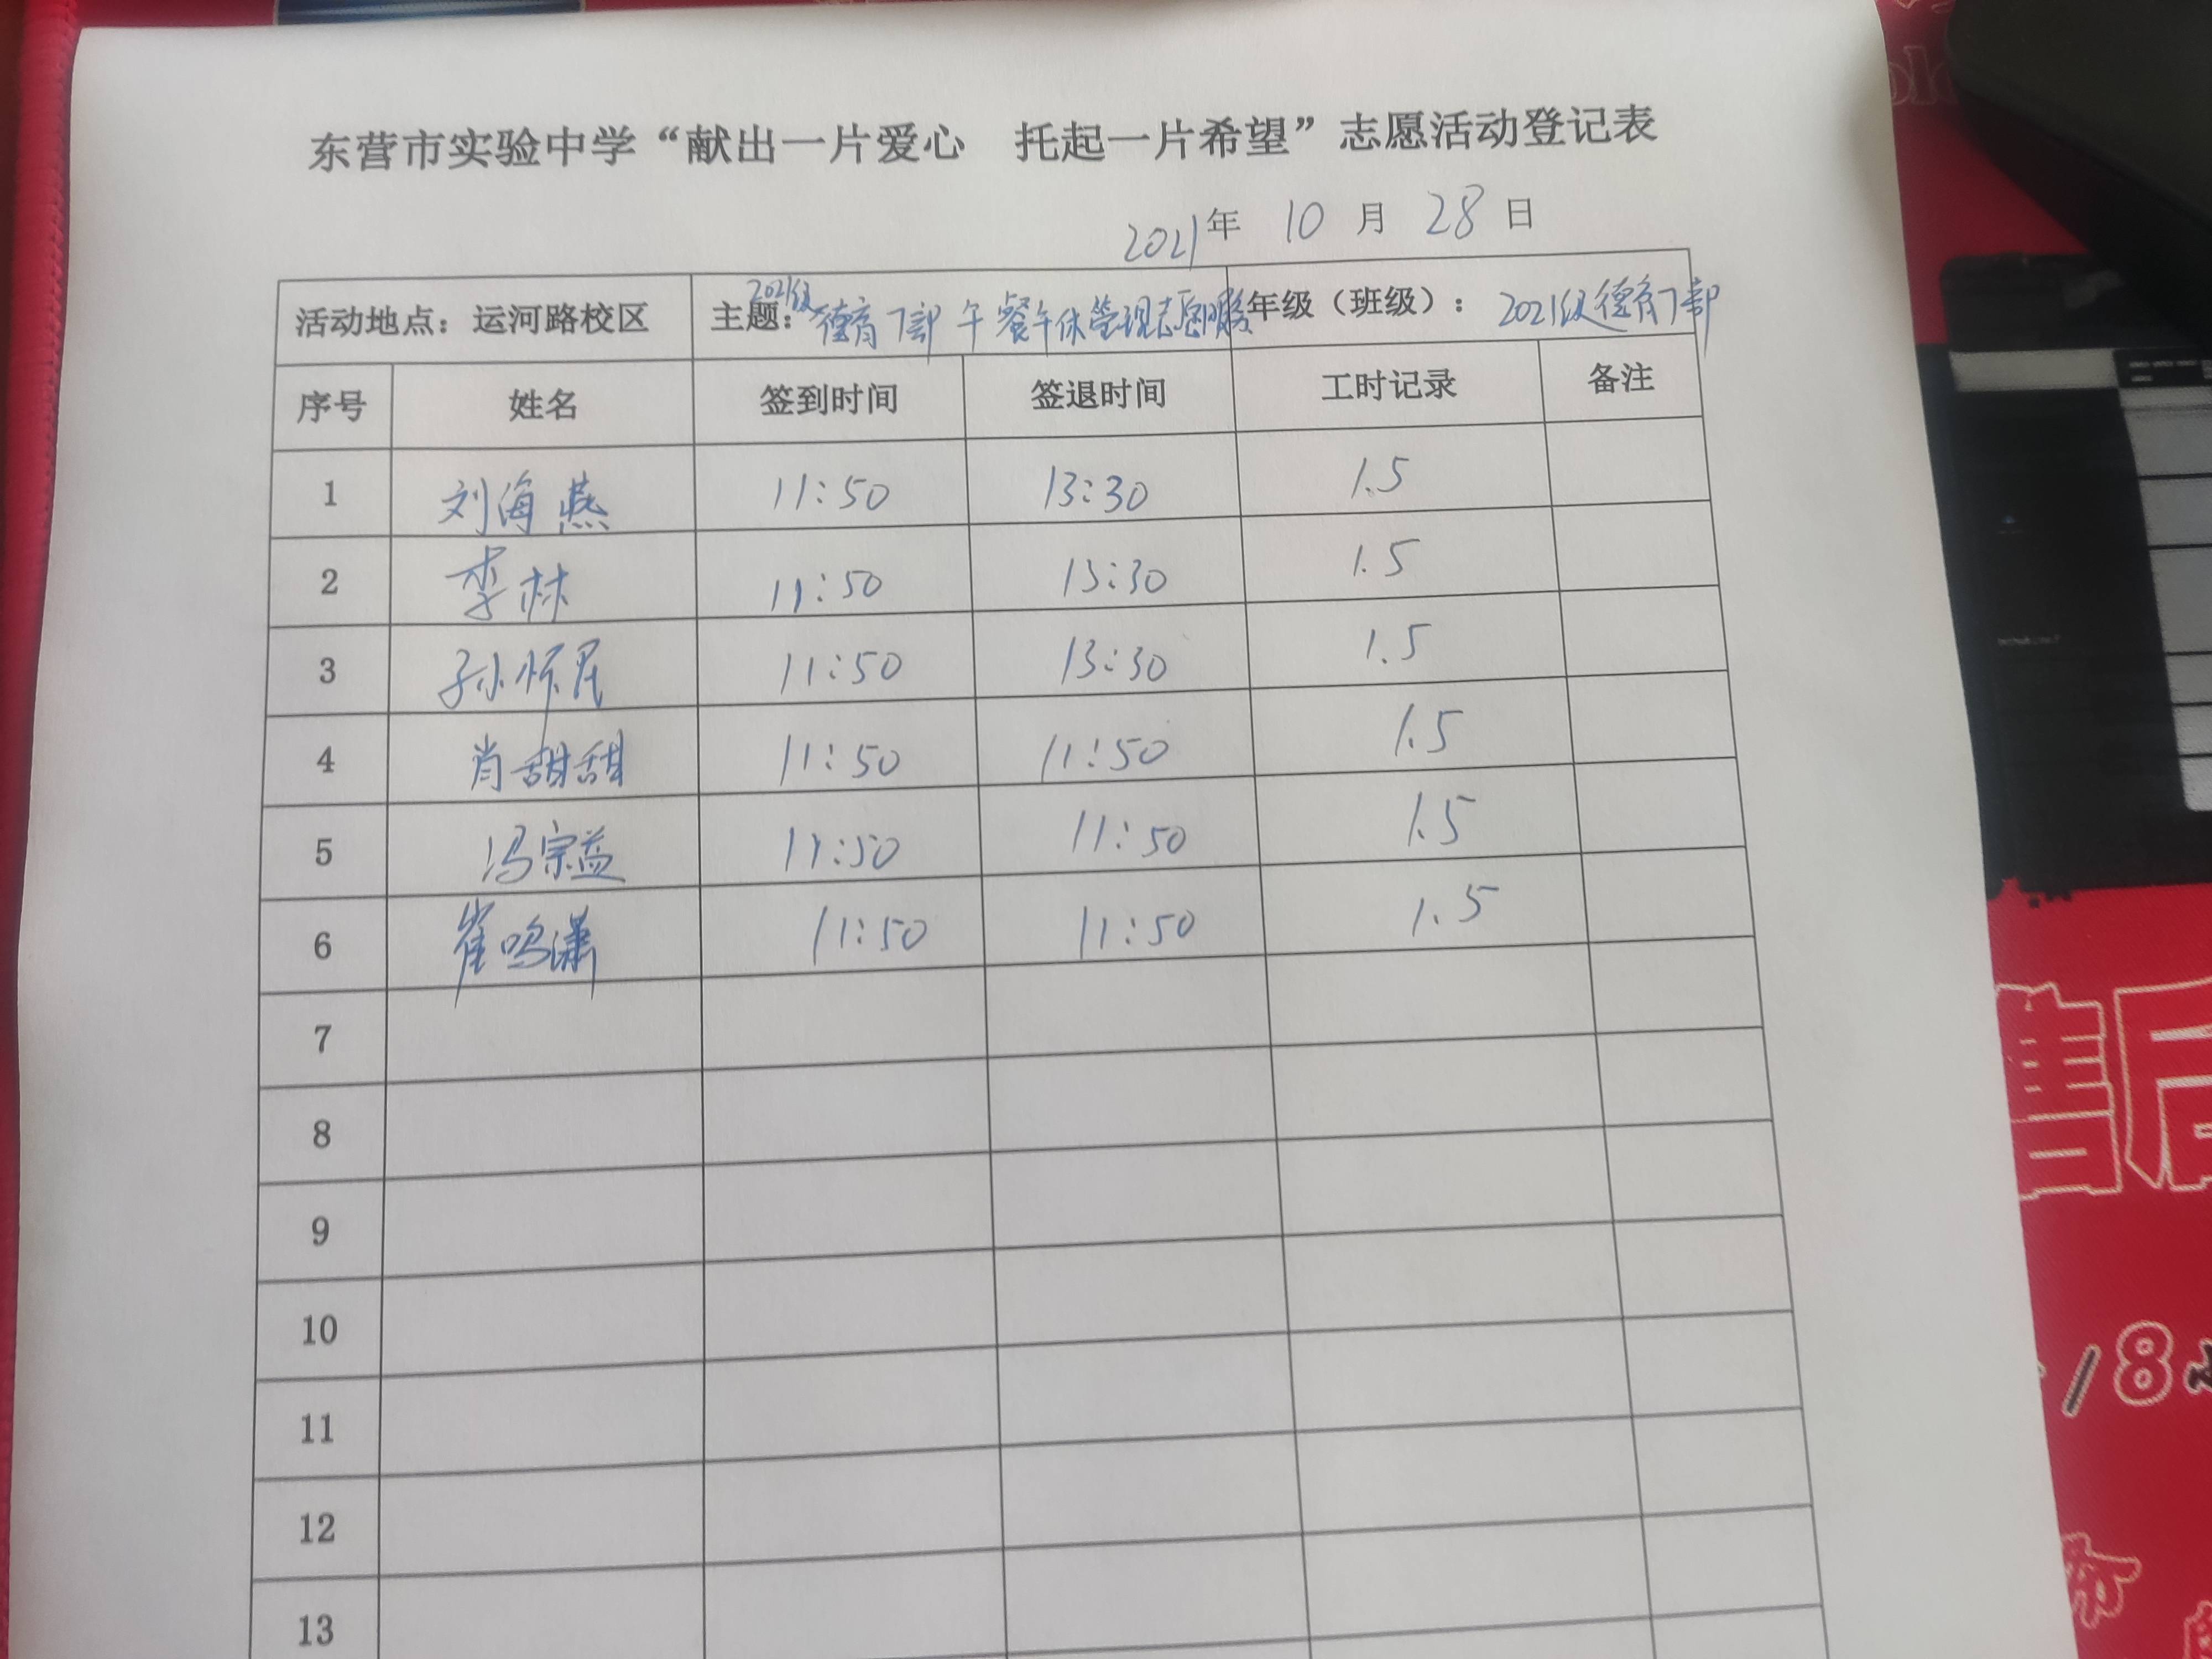 东营市实验中学“献出一片爱心 托起一片希望”志愿活动登记表
2021年 10 月 28 日
活动地点：运河路校区 主题：2021级德育门部午餐午休管理志愿服务 年级（班级）：2021级德育门部
序号 姓名 签到时间 签退时间 工时记录 备注
1 刘海燕 11:50 13:30 1.5
2 李林 11:50 13:30 1.5
3 孙怀民 11:50 13:30 1.5
4 肖甜甜 11:50 11:50 1.5
5 冯宗益 11:50 11:50 1.5
6 崔鸣潇 11:50 11:50 1.5
7
8
9
10
11
12
13
售后
/8小
布